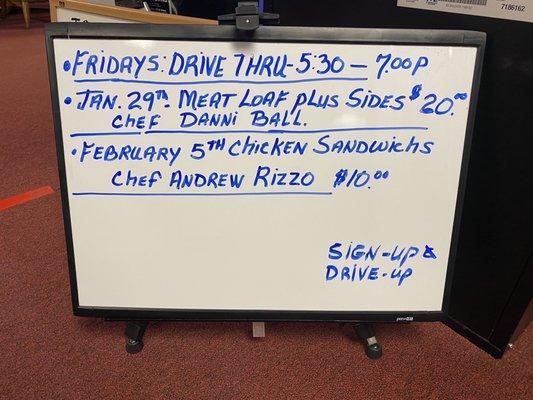 • FRIDAYS: DRIVE THRU - 5:30 — 7:00P
• JAN. 29TH. MEAT LOAF PLUS SIDES $20.00
CHEF DANNI BALL.
• FEBRUARY 5TH CHICKEN SANDWICHS
CHEF ANDREW RIZZO $10.00
SIGN-UP &
DRIVE-UP
7186162